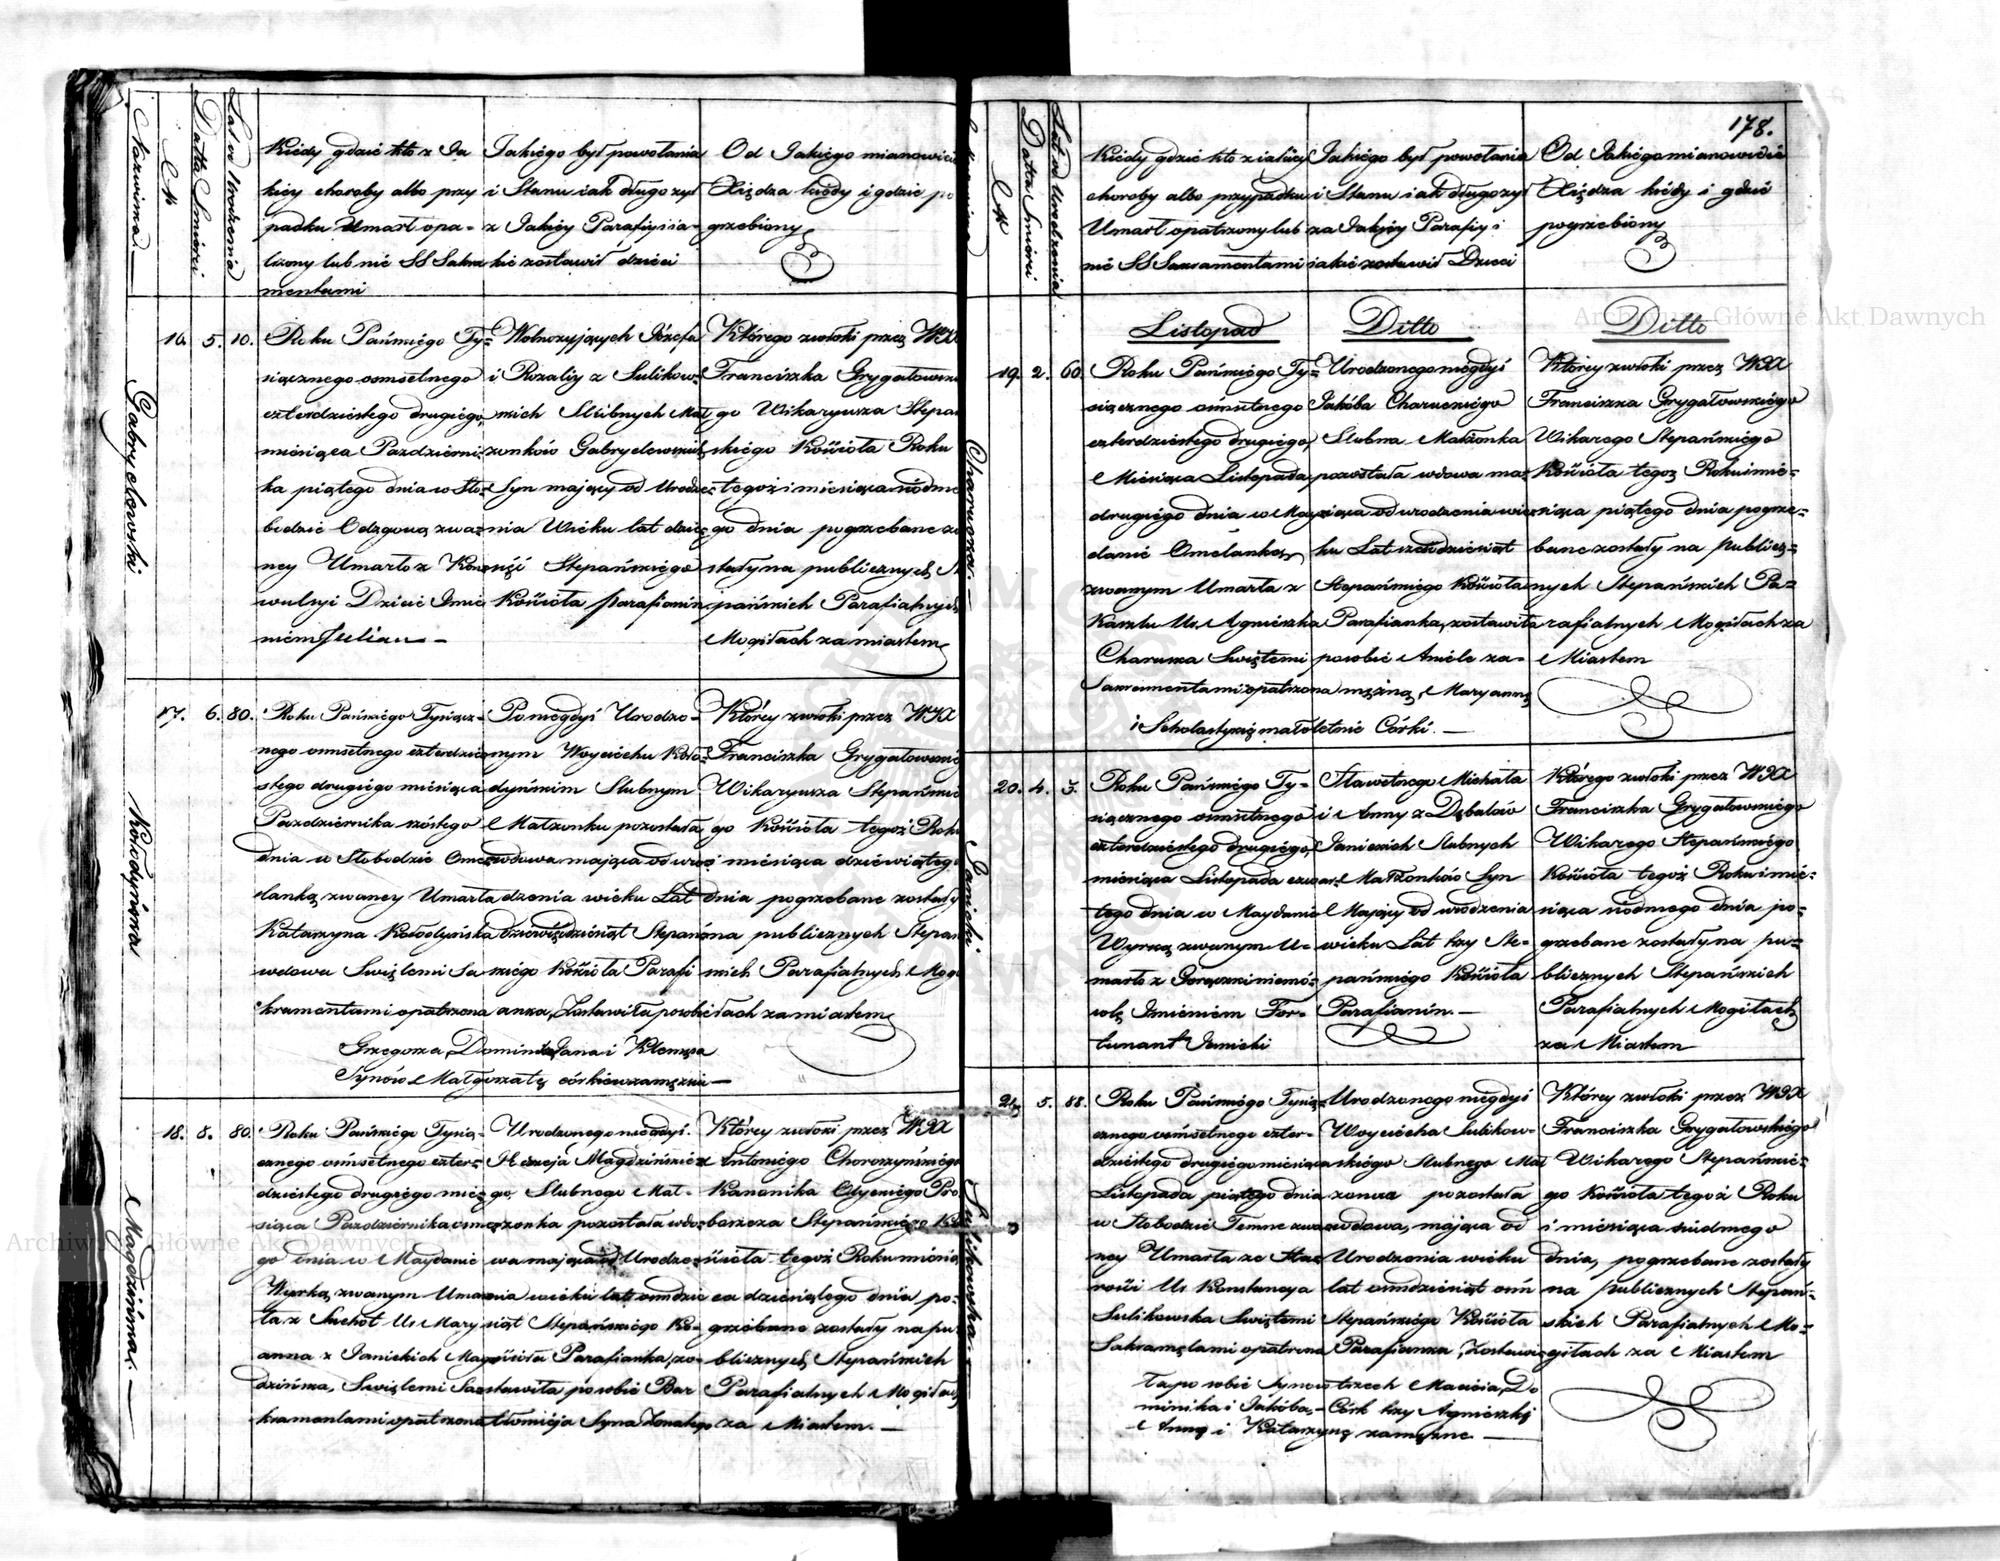 Nazwiska.
N
Datta Smierci
Lat od Urodzenia
Kiedy gdzie kto z Ja
kiey choroby albo przy
padku Umarł opa-
trzony lub nie SS Sakra
mentami
Jakiego był powołania
i Stanu iak długo zył
z Jakiey Parafiyi ia-
kie zostawił dzieci
Od Jakiego mianowicie
Xiędza kiedy i gdzie po
grzebiony
Gabryelowski
16. 5. 10.
Roku Pańskiego Ty=
siącznego osmsetnego
czterdziestego drugiego,
miesiąca Pazdzierni=
ka piątego dnia w Sło=
bodzie Odzgową zwa=
ney Umarł z Kon=
wulsyi Dziecie Imie
niem Julian —
Wolnozyjących Józefa
i Rozaliy z Sulikow=
skich Slubnych Mał
zonków Gabryelowskich
Syn maiący od Urodze=
nia Wieku lat dzie=
sięć Stepańskiego
Kościoła parafianin
Którego zwłoki przez WJX
Franciszka Grygatowskie
go Wikaryusza Stepań
skiego Kościoła Roku
tegoż i miesiąca siódme
go dnia pogrzebane zo
stały na publicznych Ste
pańskich Parafialnych
Mogiłach za miastem
Kołodyńska
17. 6. 80.
Roku Pańskiego Tysiącz=
nego osmsetnego czterdzie
stego drugiego miesiąca
Pazdziernika szóstego
dnia w Słobodzie Ome=
lanką zwaney Umarła
Katarzyna Kołodyńska
wdowa Swiętemi Sa
kramentami opatrzona
Po niegdyś Urodzo=
nym Woyciechu Koło=
dyńskim Slubnym
Małzonku pozostała
wdowa mająca od uro=
dzenia wieku Lat
dziewięćdziesiąt Stepań
skiego Kościoła Parafi
anka, Zostawiła po sobie
Grzegorza, Dominika Jana i Klemensa
Synów Małgorzatę córkie w zamęzciu —
Którey zwłoki przez WJX
Franciszka Grygatowskie
Wikaryusza Stepańskie
go Kościoła tegoż Roku
i miesiąca dziewiątego
dnia pogrzebane zostały
na publicznych Stepań
skich Parafialnych Mog
iłach za miastem
Magdzińska. —
18. 8. 80.
Roku Pańskiego Tysią=
cznego osmsetnego czter=
dziestego drugiego mie=
siąca Pazdziernika osme=
go dnia w Maydanie
Wyrką zwanym Umar
ła z Suchot Ur Mary
anna z Janickich Mag
dzińska, Swiętemi Sa=
kramentami opatrzona
Urodzonego niegdyś
Magdzińskie
go, Slubnego Mał=
zonka pozostała wdo=
wa mająca od Urodze=
nia wieku lat osmdzie
siąt Stepańskiego Ko=
ścioła Parafianka, zo=
stawiła po sobie Bar
tłomieja Syna Zonatego
Którey zwłoki przez WJX
Antoniego Chorozyńskiego
Kanonika Ołyckiego Pro
boszcza Stepańskiego Ko
ścioła tegoż Roku miesią
ca dziesiątego dnia po=
grzebane zostały na pu
blicznych Stepańskich
Parafialnych Mogiłach
za Miastem. —
178.
N
Datta Smierci
Lat od Urodzenia
Kiedy gdzie kto z iakiey
choroby albo przypadku
Umarł opatrzony lub
nie SS Sakramentami
Jakiego był powołania
i Stanu iak długo zył
za Jakiey Parafiy i
iakie zostawił Dzieci
Od Jakiego mianowicie
Xiędza kiedy i gdzie
pogrzebiony
Listopad
Ditto
Ditto
Charucka. —
19. 2. 60.
Roku Pańskiego Ty=
siącznego ośmsetnego
czterdziestego drugiego,
Miesiąca Listopada
drugiego dnia w May=
danie Omelanką
zwanym Umarła z
Kaszlu Ur. Agnieszka
Charucka Swiętemi
Sakramentami opatrzona
Urodzonego niegdyś
Jakóba Charuckiego
Slubna Małżonka
pozostała wdowa ma=
iąca od urodzenia wie=
ku Lat sześćdziesiąt
Stepańskiego Kościoła
Parafianka, zostawiła
po sobie Anielę za=
męzną, Maryannę
i Scholastykię małoletnie Córki. —
Którey zwłoki przez WJX
Franciszka Grygatowskiego
Wikarego Stepańskiego
Kościoła tegoż Roku i mie=
siąca piątego dnia pogrze=
bane zostały na publicz=
nych Stepańskich Pa=
rafialnych Mogiłach za
Miastem
Janicki.
20. 4. 3.
Roku Pańskiego Ty=
siącznego osmsetnego
czterdziestego drugiego,
miesiąca Listopada czwar=
tego dnia w Maydanie
Wyrką zwanym U=
marł z Gorączki niemo=
wlę Imieniem For=
tunant Janicki
Sławetnego Michała
i Anny z Dębalów
Janickich Slubnych
Małżonków Syn
Mający od urodzenia
wieku Lat trzy Ste=
pańskiego Kościoła
Parafianin. —
Którego zwłoki przez WJX
Franciszka Grygatowskiego
Wikarego Stepańskiego
Kościoła tegoż Roku i mie=
siąca siódmego dnia po=
grzebane zostały na pu=
blicznych Stepańskich
Parafialnych Mogiłach
za Miastem
Sulikowska. —
21. 5. 88.
Roku Pańskiego Tysią=
cznego ośmsetnego czter=
dziestego drugiego miesiąca
Listopada piątego dnia
w Słobodzie Temne zwa=
ney Umarła ze Sta=
rości Ur Konstancya
Sulikowska Swiętemi
Sakramętami opatrzona
Urodzonego niegdyś
Woyciecha Sulikow=
skiego Slubnego Mał
zonka pozostała
wdowa, mająca od
Urodzenia wieku
lat osmdziesiąt ośm
Stepańskiego Kościoła
Parafianka, Zostawi=
ła po sobie Synow trzech Macieia, Do
minika i Jakóba, — Córk trzy Agnieszkę
Annę i Katarzynę zamęzne —
Którey zwłoki przez WJX
Franciszka Grygatowskiego
Wikarego Stepańskie=
go Kościoła tegoż Roku
i miesiąca siedmego
dnia, pogrzebane zostały
na publicznych Stepań=
skich Parafialnych Mo=
giłach za Miastem
Archiwum Główne Akt Dawnych
Archiwum Główne Akt Dawnych